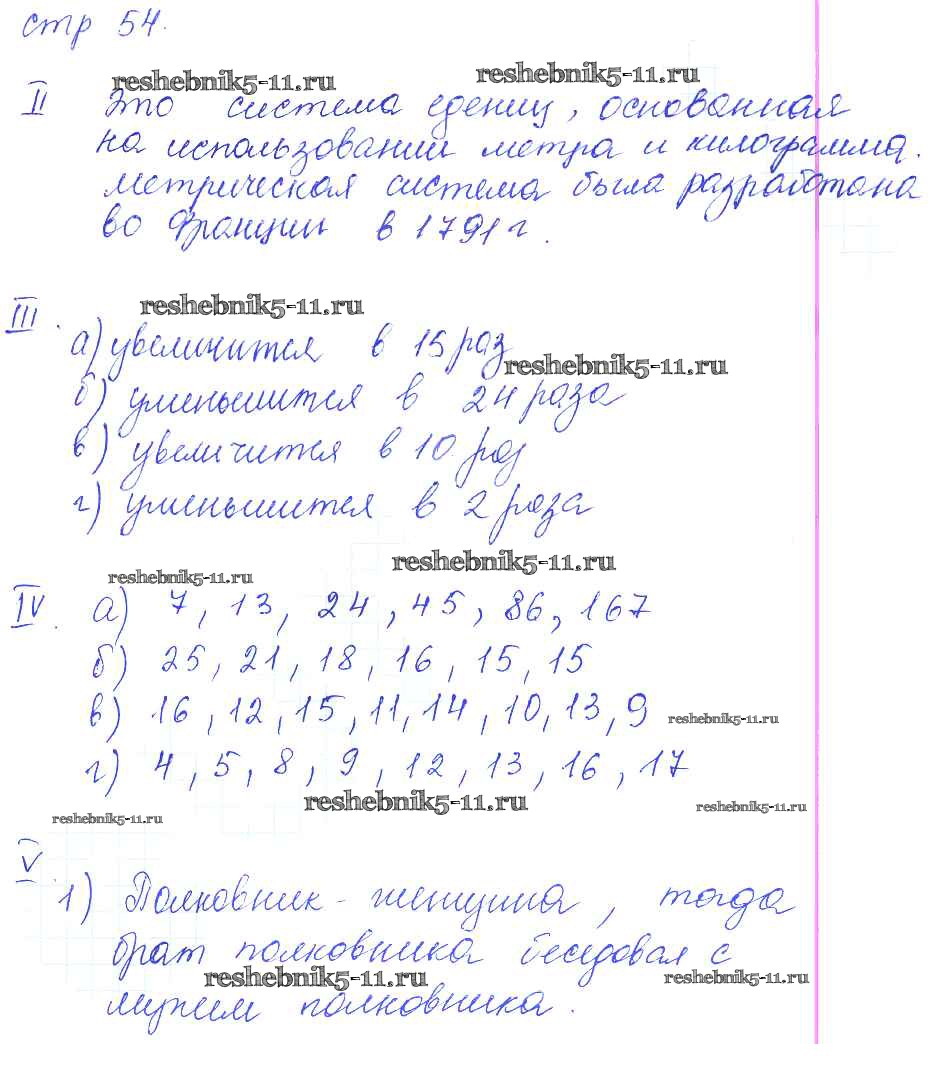 стр 54.
reshebnik5-11.ru
reshebnik5-11.ru
II Это система едениц, основанная
на использовании метра и килограмма.
Метрическая система была разработана
во Франции в 1791 г.
reshebnik5-11.ru
III. а) увеличится в 15 раз
reshebnik5-11.ru
б) уменьшится в 24 раза
в) увеличится в 10 раз
г) уменьшится в 2 раза
reshebnik5-11.ru
reshebnik5-11.ru
IV. а) 7, 13, 24, 45, 86, 167
б) 25, 21, 18, 16, 15, 15
в) 16, 12, 15, 11, 14, 10, 13, 9
reshebnik5-11.ru
г) 4, 5, 8, 9, 12, 13, 16, 17
reshebnik5-11.ru
reshebnik5-11.ru
reshebnik5-11.ru
V
1) Полковник - женщина, тогда
брат полковника беседовал с
reshebnik5-11.ru
reshebnik5-11.ru
мужем полковника.